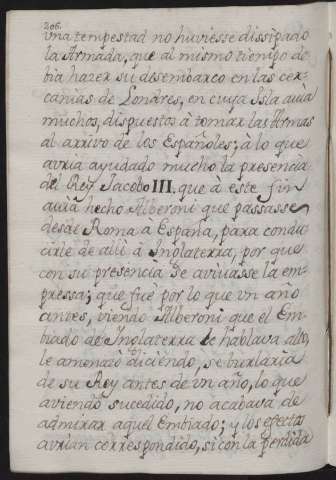 206.
vna tempestad no huviesse dissipado
la Armada, que al mismo tiempo de-
bia hazer su desembarco en las cer-
canias de Londres, en cuya Isla avia
muchos, dispuestos à tomar las Armas
al arrivo de los Españoles; à lo que
avria ayudado mucho la presencia
del Rey Jacobo III. que à este fin
avia hecho Alberoni que passasse
desde Roma a España, para condu-
cirle de alli à Inglaterra, por que
con su presencia se avivasse la em-
pressa; que fuè por lo que vn año
antes, viendo Alberoni que el Em-
biado de Inglaterra le hablava alto,
le amenazò diciendo, se burlaria
de su Rey antes de vn año, lo que
aviendo sucedido, no acabava de
admirar aquel Embiado; y los efectos
avrian correspondido, si con la perdida